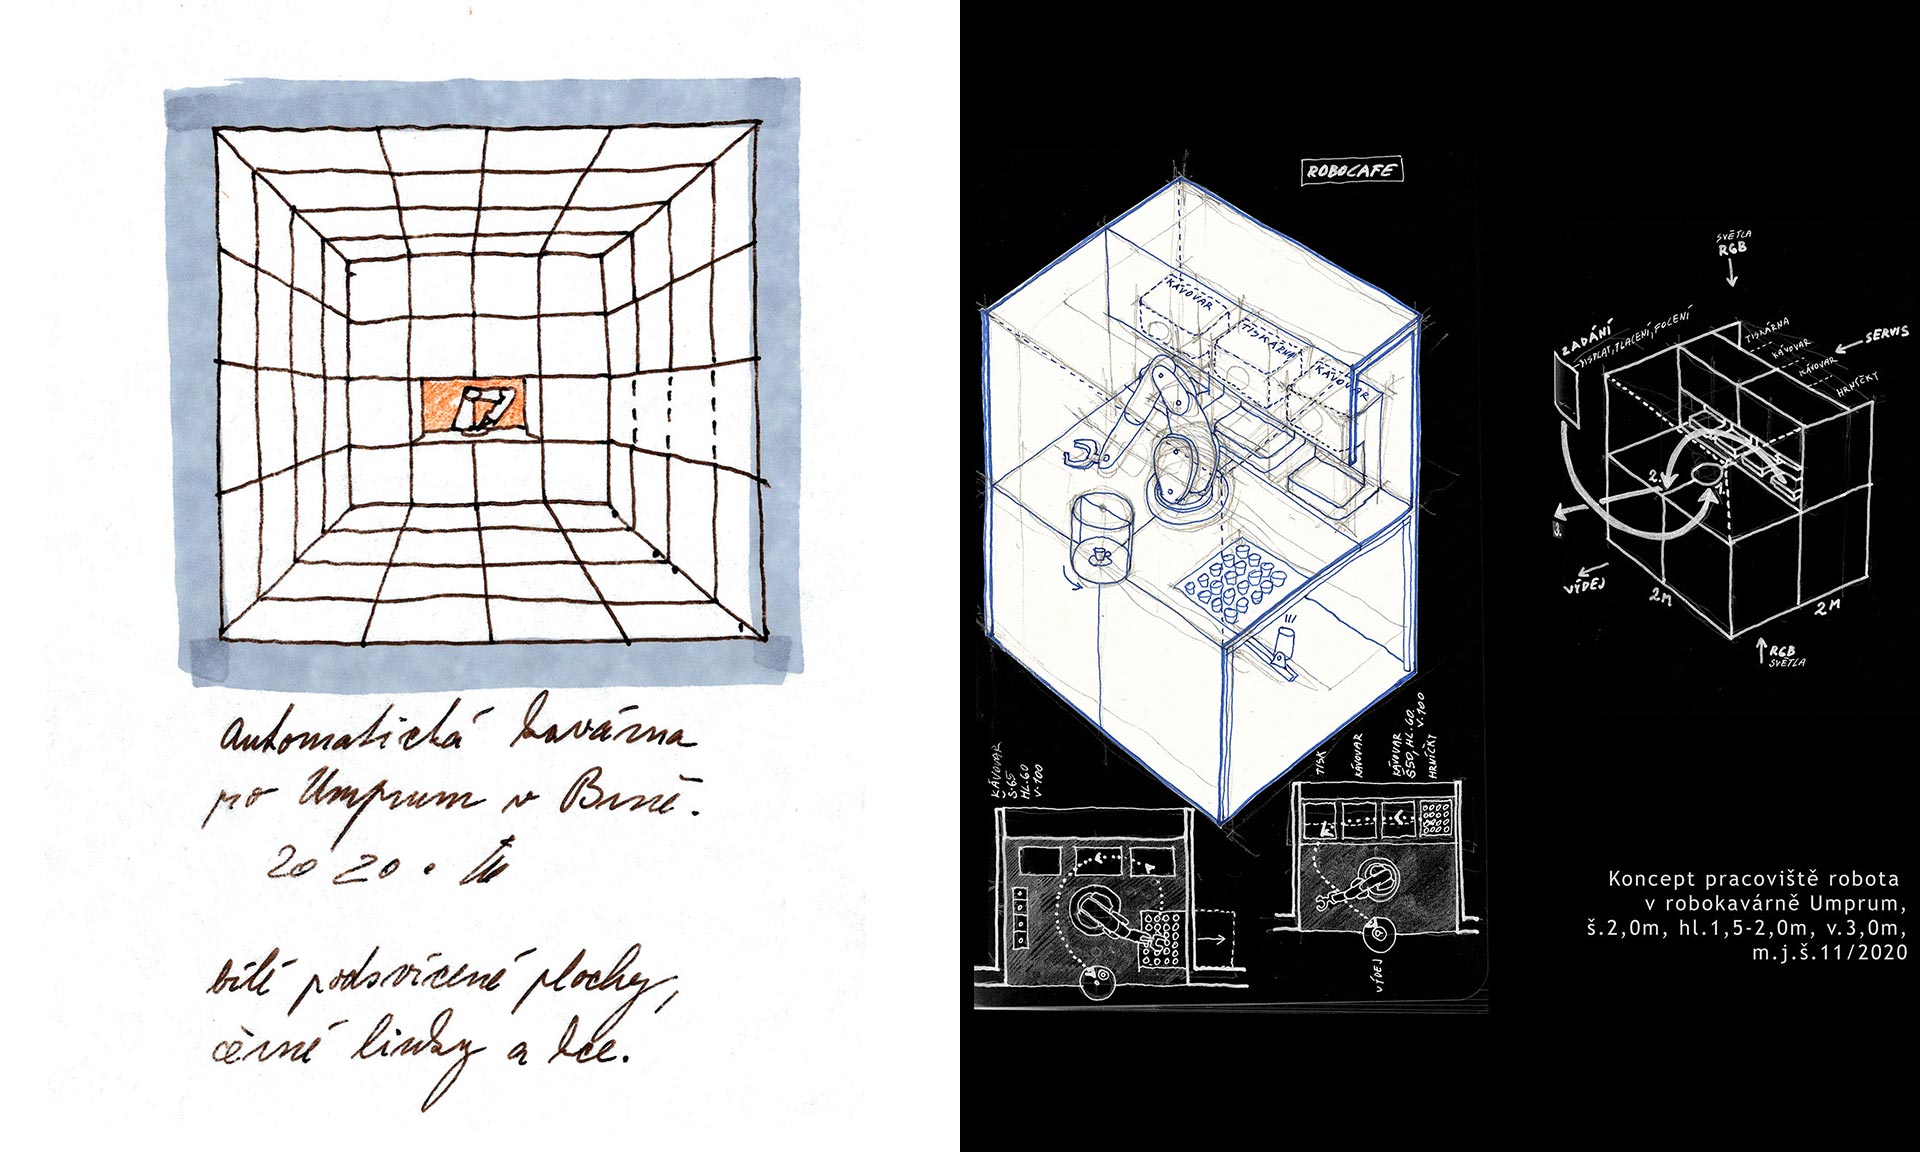 automatická kavárna
pro Umprum v Brně.
2020 .
bílé podsvícené plochy,
černé linky a kce.
ROBOCAFE
KÁVOVAR
TISKÁRNA
KÁVOVAR
SVĚTLA
RGB
ZADÁNÍ
DISPLAY, TLAČENÍ, FOCENÍ
TISKÁRNA
KÁVOVAR
KÁVOVAR
HRNÍČKY
SERVIS
1.
2.
3.
VÝDEJ
2M
2M
RGB
SVĚTLA
KÁVOVAR
Š.65
HL.60
V.100
TISK
KÁVOVAR
KÁVOVAR
Š50, HL.60.
V.100
HRNÍČKY
VÝDEJ
Koncept pracoviště robota
v robokavárně Umprum,
š.2,0m, hl.1,5-2,0m, v.3,0m,
m.j.š.11/2020